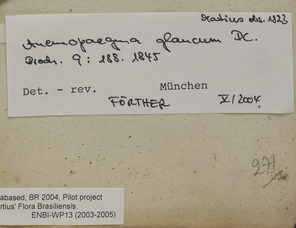 Martius obs. 1323
Anemopaegma glaucum DC.
Prodr. 9: 188. 1845
Det. - rev. München
FÖRTHER V/2004
271
abased, BR 2004, Pilot project
rtius' Flora Brasiliensis.
ENBI-WP13 (2003-2005)